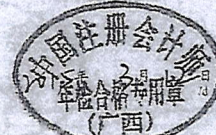 中国注册会计师
年检合格专用章
（广西）